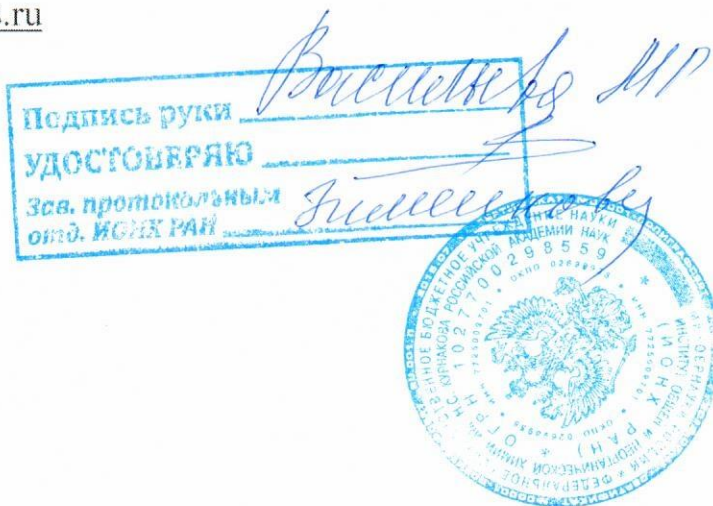 .ru
Подпись руки Васильева М Г
УДОСТОВЕРЯЮ
Зав. протокольным
отд. ИОНХ РАН
ФЕДЕРАЛЬНОЕ ГОСУДАРСТВЕННОЕ БЮДЖЕТНОЕ УЧРЕЖДЕНИЕ НАУКИ
ИНСТИТУТ ОБЩЕЙ И НЕОРГАНИЧЕСКОЙ ХИМИИ ИМ. Н.С. КУРНАКОВА РОССИЙСКОЙ АКАДЕМИИ НАУК
(ИОНХ РАН) * ОГРН 1027700298559 *